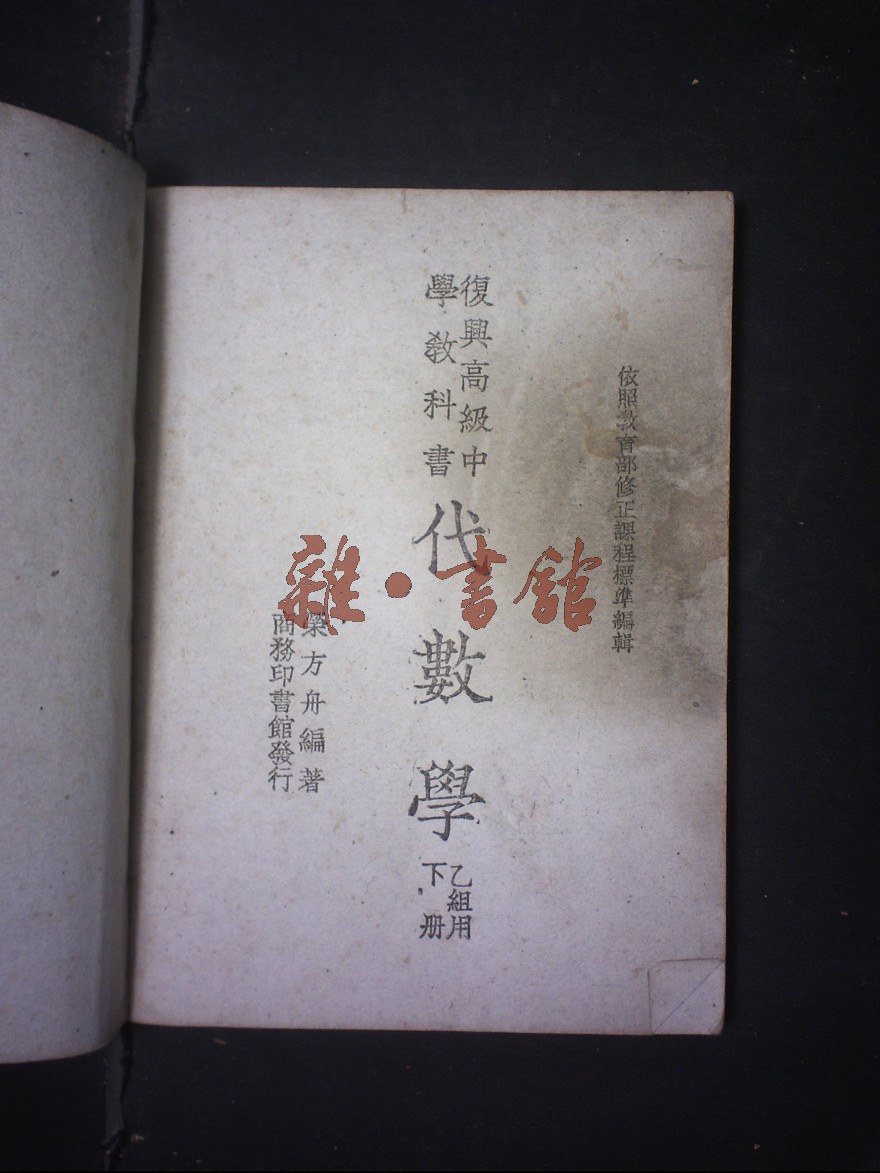 依照教育部修正課程標準編輯
復興高級中
學教科書
代數學
乙組用
下册
榮方舟編著
商務印書館發行
雜·書館